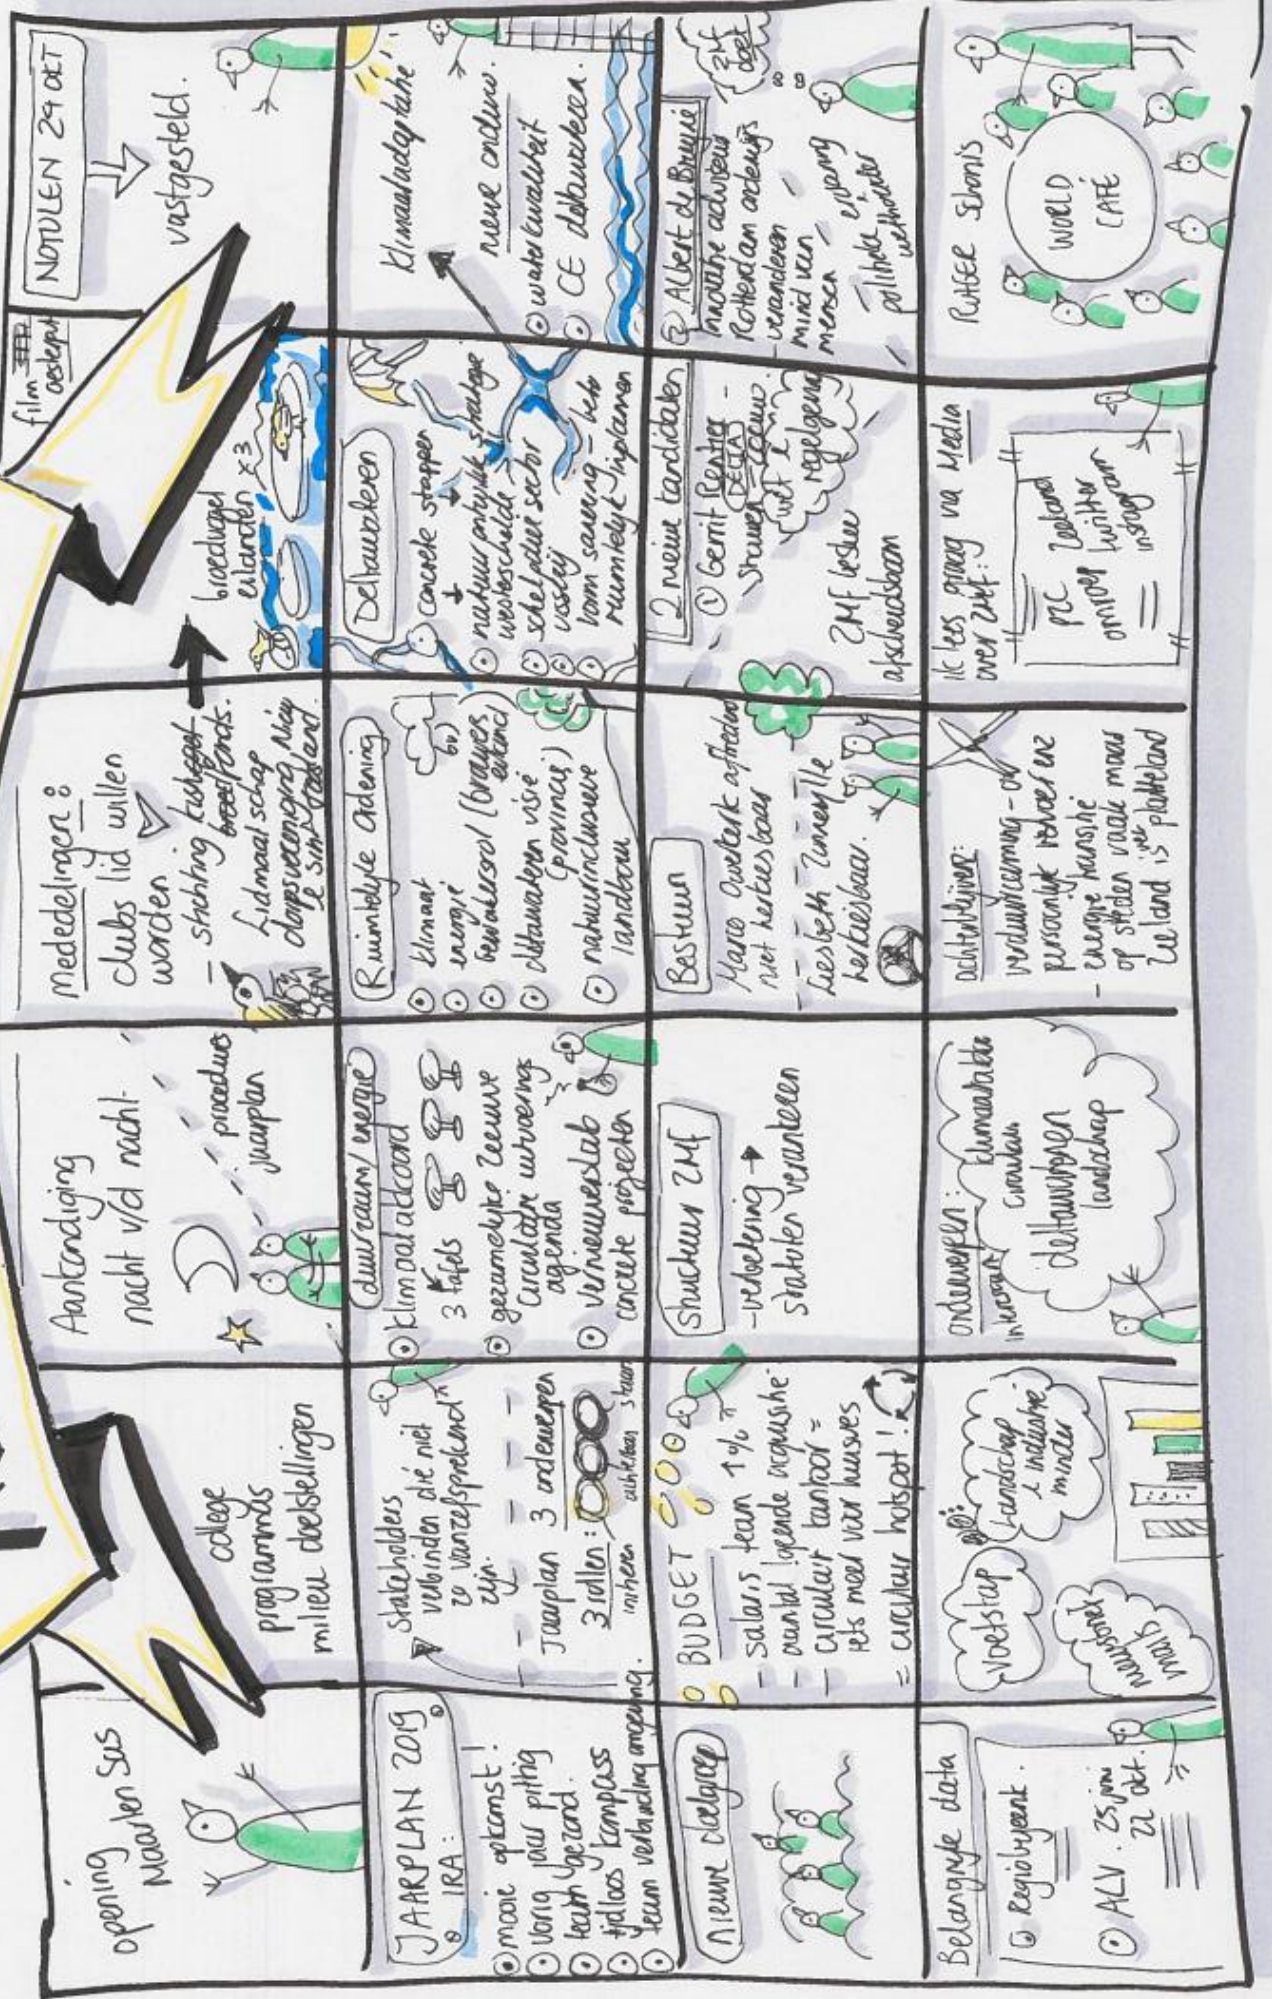 opening Sus
Maarten
college
programma's
milieu doelstellingen
Aankondiging
nacht v/d nacht
procedures
jaarplan
Mededelingen:
clubs lid willen
worden
- stichting
Lidmaatschap
dorpsvereniging Nieuw
broedvogel
eilanden x3
film
NOTULEN 29 OKT
vastgesteld.
JAARPLAN 2019
IRA:
mooie opkomst!
vorig jaar pittig
team gezond.
tijdloos kompass
team verbinding omgeving.
Stakeholders
verbinden die niet
zo vanzelfsprekend
zijn.
Jaarplan 3 onderwerpen
3 rollen:
duurzaam/energie
klimaatakkoord
3 tafels
gezamenlijke Zeeuwse
circulaire uitvoerings
agenda
Vernieuwerslab
concrete projecten
Ruimtelijke ordening
klimaat
energie
deltawateren visie
(provincie)
natuurinclusieve
landbouw
Deltawateren
concrete stappen
westerschelde
schelpdier sector
visserij
ruimtelijk inplannen
klimaatadaptatie
nieuwe onderw.
waterkwaliteit
CE deltawateren.
nieuwe doelgroep
BUDGET
- salaris team 1%
- aantal lopende acquisitie
- circulair kantoor =
iets meer voor huisves
= circulair hotspot!
Structuur ZMF
- verbetering →
statuten verankeren
Bestuur
niet herkiesbaar
Liesbeth
herkiesbaar.
2 nieuwe kandidaten
① Gerrit Rentier -
DELTA
wet &
regelgeving
ZMF beker
afscheidsboom
② Albert de Bruyne
innovatie adviseur
Rotterdam onderwijs
- veranderen
mind van
mensen
politieke ervaring
wethouder
ZMF
doet
Belangrijke data
Regiobijeenk.
ALV. 25 juni
22 okt.
voetstap
Landschap
& industrie
minder
nieuwsbrief
mails
onderwerpen:
circulair
klimaattafels
deltawateren
landschap
achterblijver:
verduurzaming - ov
persoonlijk vervoer enz
- energie transitie
op steden vaak maar
Zeeland is platteland
ik lees graag via Media
over ZMF:
PZC Zeeland
omroep twitter
instagram
RUTGER Schonis
WORLD
CAFÉ